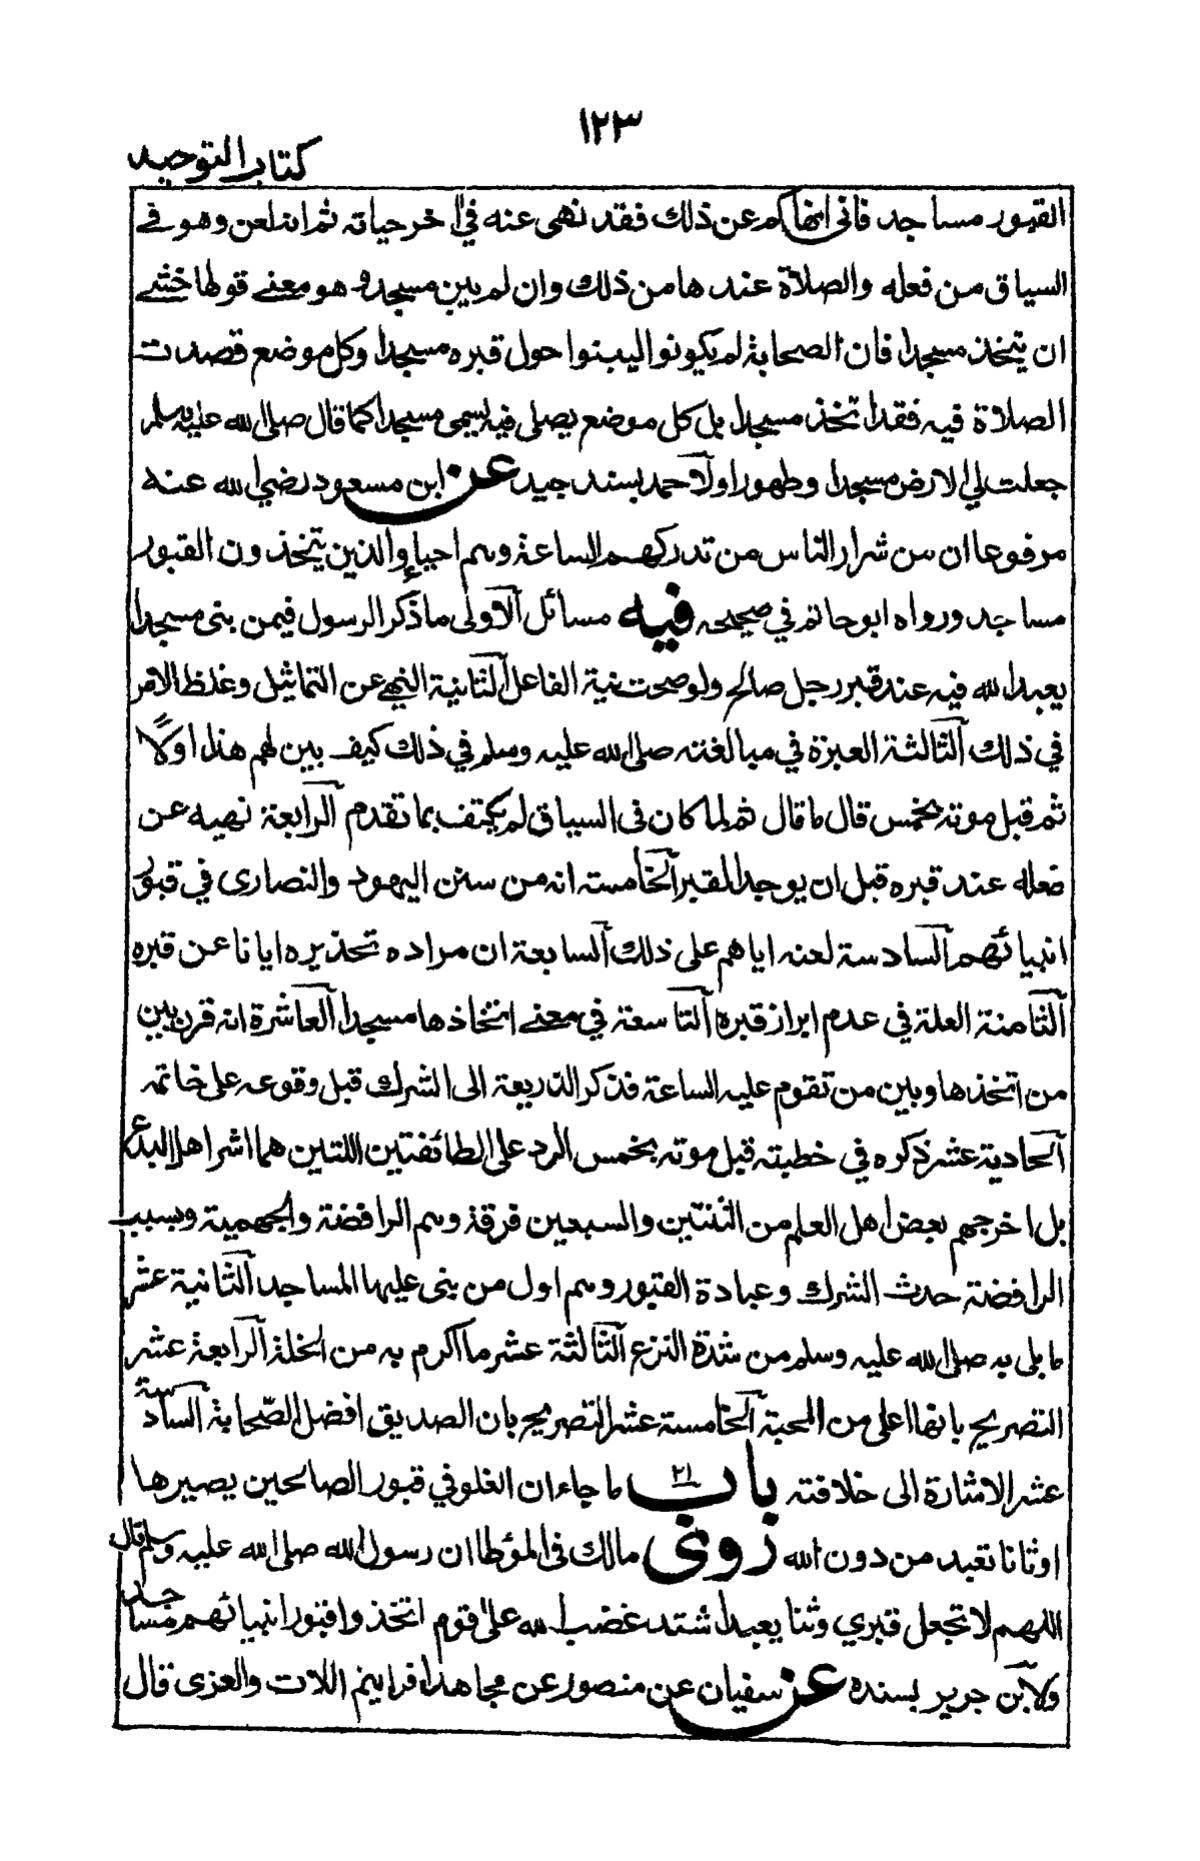 ١٢٣
كتاب التوحيد
القبور مساجد فاني انهاكم عن ذلك فقد نهى عنه في اخر حياته ثم انه لعن وهو في
السياق من فعله والصلاة عندها من ذلك وان لم يبن مسجد وهو معنے قولها خشے
ان يتخذ مسجدا فان الصحابة لم يكونوا ليبنوا حول قبره مسجدا وكل موضع قصدت
الصلاة فيه فقد اتخذ مسجدا بل كل موضع يصلى فيه يسمى مسجدا كما قال صلى الله عليه وسلم
جعلت لي الارض مسجدا وطهورا ولاحمد بسند جيد عن ابن مسعود رضي الله عنه
مرفوعا ان من شرار الناس من تدركهم الساعة وهم احياء والذين يتخذون القبور
مساجد ورواه ابو حاتم في صحيحه فيه مسائل الاولى ما ذكر الرسول فيمن بنى مسجدا
يعبد الله فيه عند قبر رجل صالح ولو صحت نية الفاعل الثانية النهے عن التماثيل وغلظ الامر
في ذلك الثالثة العبرة في مبالغته صلى الله عليه وسلم في ذلك كيف بين لهم هذا اولاً
ثم قبل موته بخمس قال ما قال ثم لما كان فى السياق لم يكتف بما تقدم الرابعة نهيه عن
فعله عند قبره قبل ان يوجد القبر الخامسة انه من سنن اليهود والنصارى في قبور
انبيائهم السادسة لعنه اياهم على ذلك السابعة ان مراده تحذيره ايانا عن قبره
الثامنة العلة في عدم ابراز قبره التاسعة في معنے اتخاذها مسجدا العاشرة انه قرن بين
من اتخذها وبين من تقوم عليه الساعة فذكر الذريعة الى الشرك قبل وقوعه على خاتمه
الحادية عشر ذكره في خطبته قبل موته بخمس الرد على الطائفتين اللتين هما اشر اهل البدع
بل اخرجهم بعض اهل العلم من الثنتين والسبعين فرقة وهم الرافضة والجهمية وبسبب
الرافضة حدث الشرك وعبادة القبور وهم اول من بنى عليها المساجد الثانية عشر
ما بلى به صلى الله عليه وسلم من شدة النزع الثالثة عشر ما اكرم به من الخلة الرابعة عشر
التصريح بانها اعلى من المحبة الخامسة عشر التصريح بان الصديق افضل الصحابة السادسة
عشر الاشارة الى خلافته باب ٢١ ما جاء ان الغلو في قبور الصالحين يصيرها
اوثانا تعبد من دون الله روى مالك فى المؤطا ان رسول الله صلى الله عليه وسلم قال
اللهم لا تجعل قبري وثنا يعبد اشتد غضب الله على قوم اتخذوا قبور انبيائهم مساجد
ولابن جرير بسنده عن سفيان عن منصور عن مجاهد افرايتم اللات والعزى قال